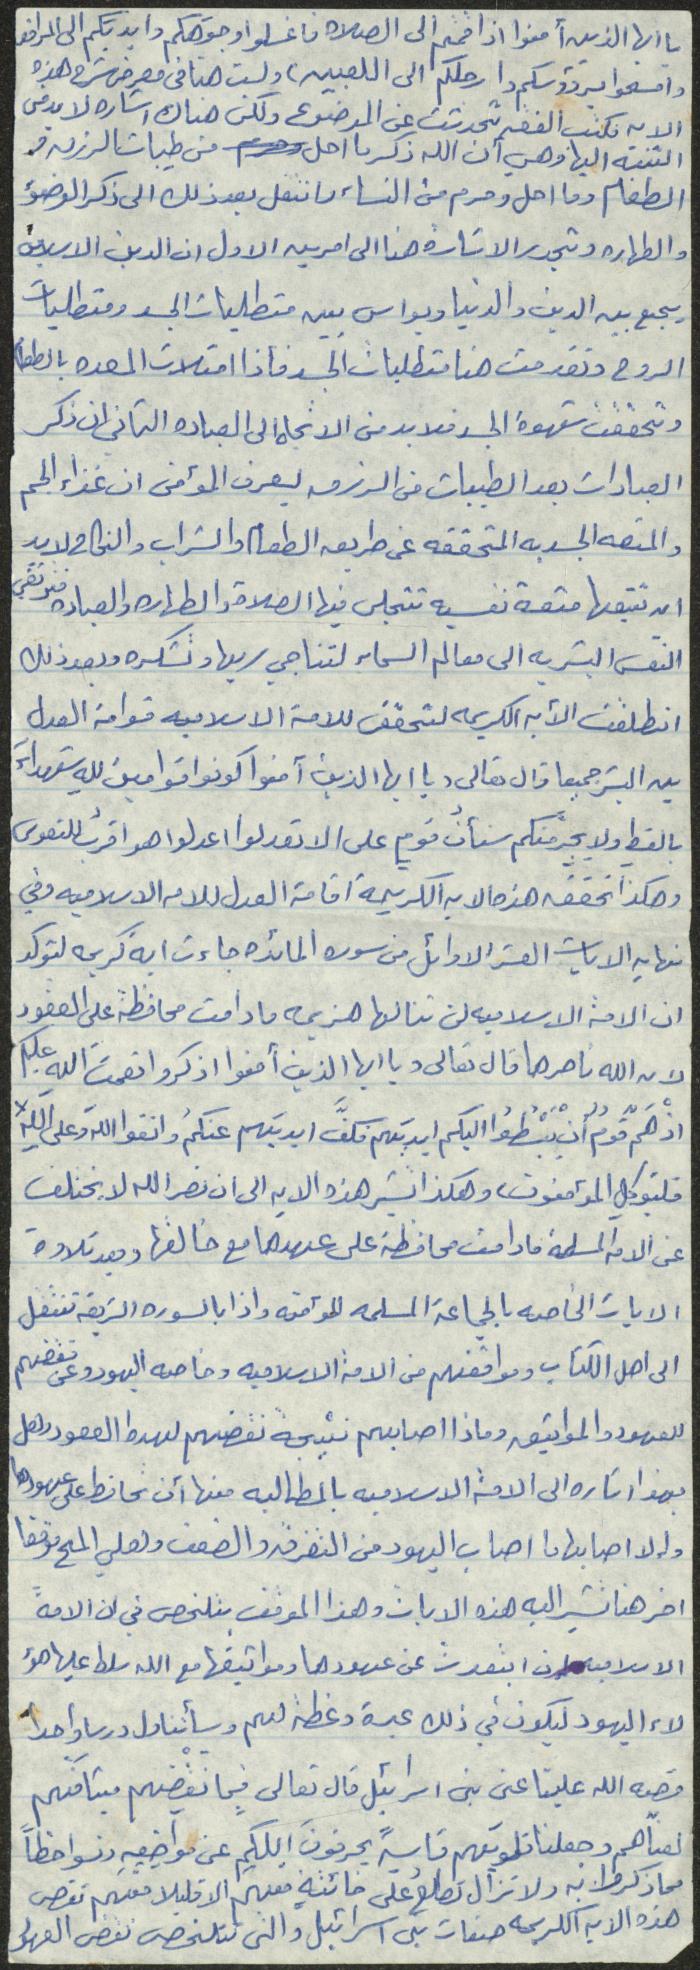 يا ايها الذين أمنوا اذا قمتم الى الصلاه فاغسلوا وجوهكم وايديكم الى المرافق
وامسحوا برؤوسكم وارجلكم الى الكعبين) ولست هنا في معرض شرح هذه
الايه فكتب الفقه تحدثت عن الموضوع ولكن هناك اشاره لابد من
التنبه اليها وهي أن الله ذكر ما احل من طيبات الرزق و
الطعام وما احل وحرم من النساء فانتقل بعد ذلك الى ذكر الوضوء
والطهاره وتجدر الاشاره هنا الى امرين الاول ان الدين الاسلامي
يجمع بين الدين والدنيا ويواس بين متطلبات الجسد ومتطلبات
الروح وتقدمت هنا متطلبات الجسد فاذا امتلات المعده بالطعام
وتحققت شهوة الجسد فلابد من الاتجاه الى العباده الثاني ان ذكر
العبادات بعد الطيبات من الرزق ليعرف المؤمن ان غذاء الجسم
والمتعه الجسديه المتحققه عن طريق الطعام والشراب والنكاح لابد
ان تتبعها متعة نفسيه تتجلى فيها الصلاة والطهاره والعباده فترتقي
النفس البشريه الى معالم السماء لتناجي ربها وتشكره وبعد ذلك
انطلقت الأيه الكريمه لتحقق للامة الاسلاميه قوامة العدل
بين البشر جميعا قال تعالى ( يا ايها الذين أمنوا كونوا قوامين لله شهداءَ
بالقسط ولا يجرمنكم شنأن قومٍ على الا تعدلوا اعدلوا هو اقربُ للتقوى
وهكذا تحققه هذه الايه الكريمة اقامة العدل للامه الاسلاميه وفي
نهايه الايات العشر الاوائل من سوره المائده جاءت ايةٌ كريمه لتوكد
ان الامة الاسلاميه لن تنالها هزيمه مادامت محافظة على العقود
لان الله ناصرها قال تعالى ( يا ايها الذين أمنوا اذكروا نعمت الله عليكم
اذ هَمَّ قومٌ أن يَبْسُطُوا اليكم ايديَهم فكفَّ ايديَهم عنكُم واتقوا اللهَ وعلى اللهِ
فليتوكلِ المؤمنون) وهكذا تشير هذه الايه الى ان نصر الله لا يختلف
عن الامة المسلمة مادامت محافظة على عهدها مع خالقها وبعد تلاوة
الايات الخاصه بالجماعة المسلمه المؤمنه واذا بالسوره الشريفه تنتقل
الى اهل الكتاب ومواقفهم من الامة الاسلاميه وخاصه اليهود وعن نقضهم
للعهود والمواثيق وماذا اصابهم نتيجة نقضهم لهذه العقود ولعل
بهذا اشاره الى الامة الاسلاميه بالمطالبه منها أن تحافظ على عهودها
والا اصابها ما اصاب اليهود من التفرق والضعف ولعلي المح موقفا
اخر هنا تشير اليه هذه الايات وهذا الموقف يتلخص في ان الامة
الاسلاميه ان ابتعدت عن عهودها ومواثيقها مع الله سلط عليها هؤ
لاء اليهود ليكون في ذلك عبرة وعظة لهم وسأتناول درسا واحداً
قصه الله علينا عن بني اسرائيل قال تعالى فبِما نقْضِهم ميثاقَهم
لعنّاهم وجعلنا قلوبَهم قاسيةً يحرفونَ الكلِم عن مواضِعِهِ ونسوا حظاً
مما ذكروا به ولا تزالُ تطلعُ على خائنةٍ منهم الا قليلا منهم تقص
هذه الايه الكريمه صفات بني اسرائيل والتي تتلخص نقض العهود